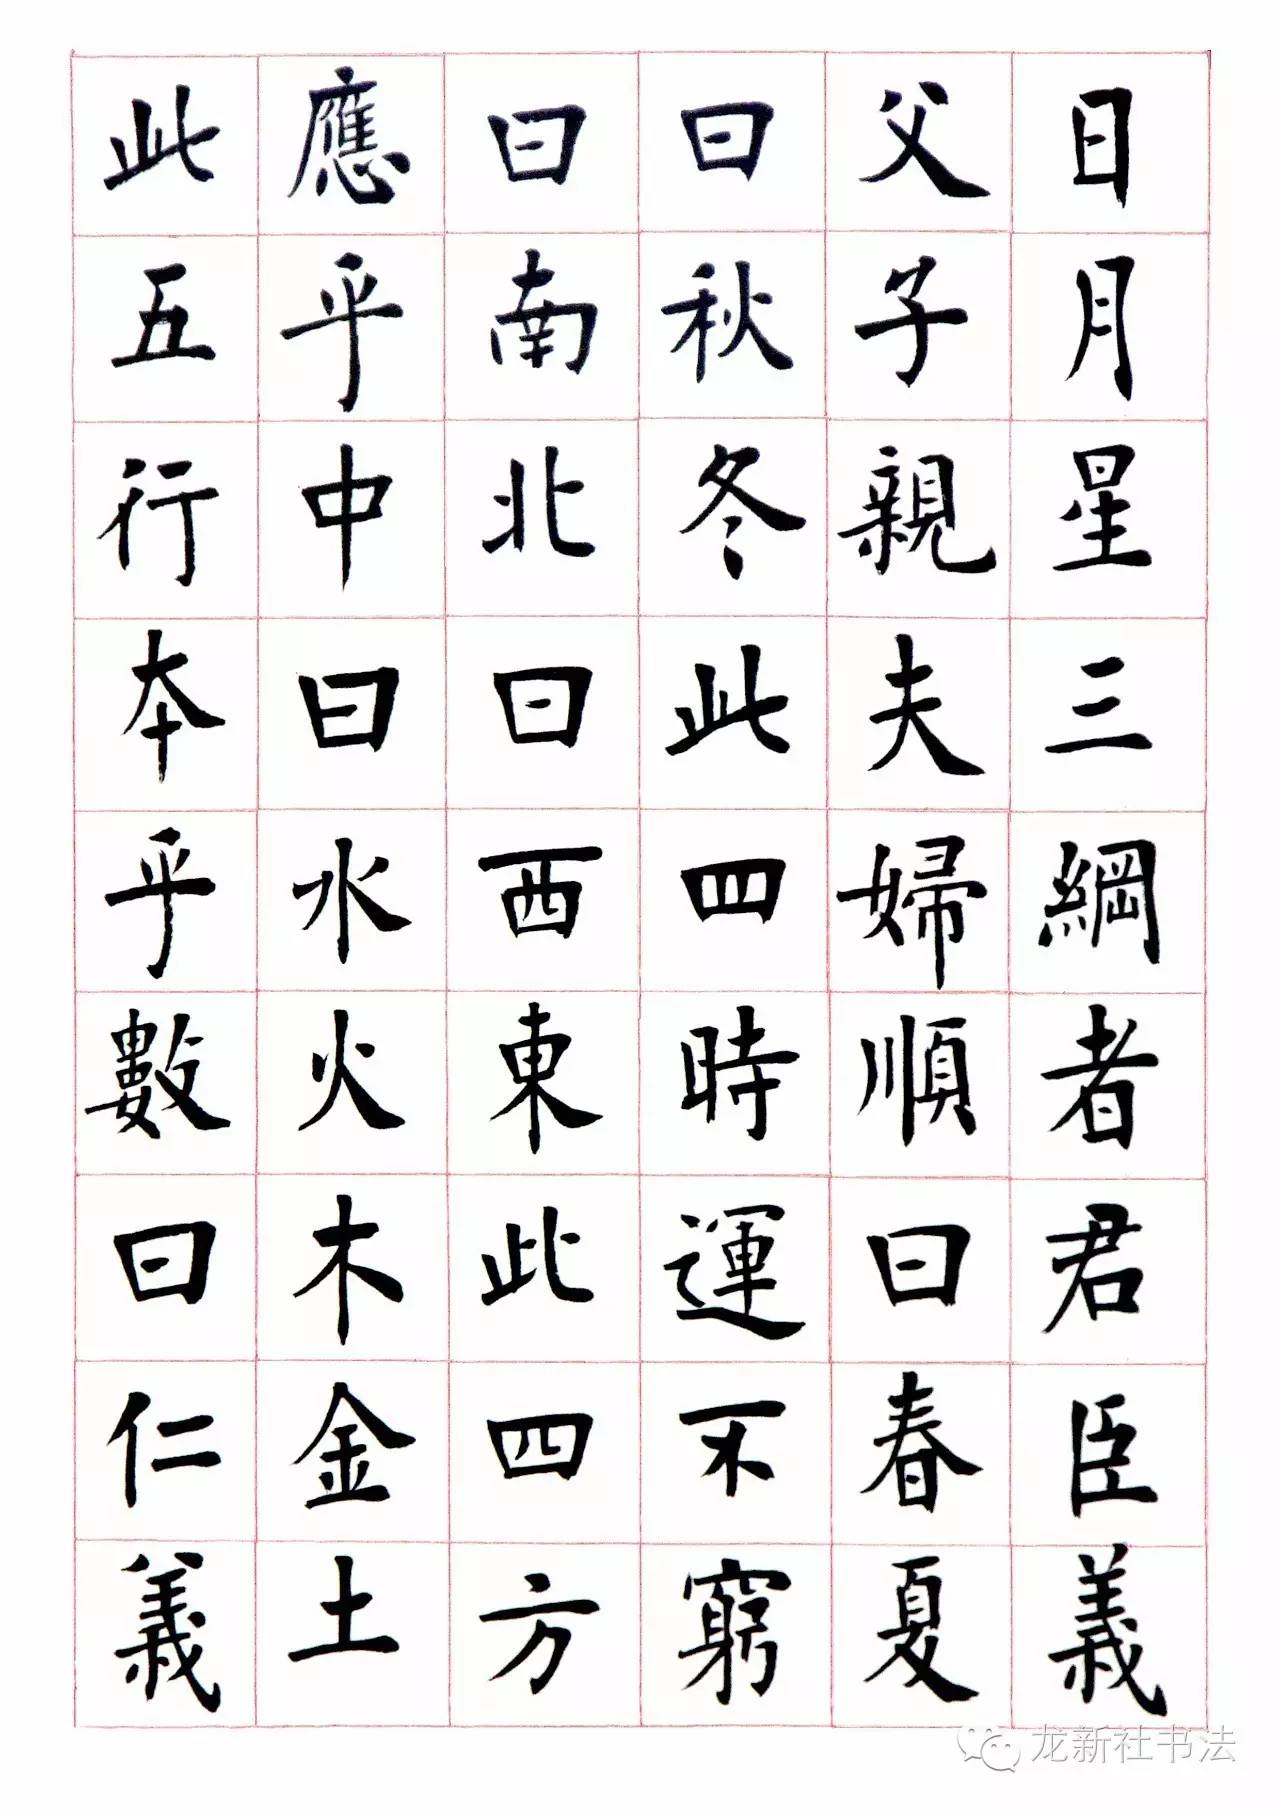 日月星三綱者君臣義
父子親夫婦順曰春夏
曰秋冬此四時運不窮
曰南北曰西東此四方
應乎中曰水火木金土
此五行本乎數曰仁義
龙新社书法